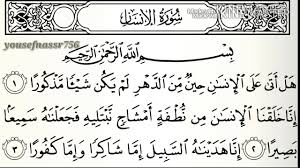 سُورَةُ الإِنسَانِ
yousefnassr756
بِسْمِ اللَّهِ الرَّحْمَٰنِ الرَّحِيمِ
هَلْ أَتَىٰ عَلَى الْإِنسَانِ حِينٌ مِّنَ الدَّهْرِ لَمْ يَكُن شَيْئًا مَّذْكُورًا ١
إِنَّا خَلَقْنَا الْإِنسَانَ مِن نُّطْفَةٍ أَمْشَاجٍ نَّبْتَلِيهِ فَجَعَلْنَاهُ سَمِيعًا
بَصِيرًا ٢ إِنَّا هَدَيْنَاهُ السَّبِيلَ إِمَّا شَاكِرًا وَإِمَّا كَفُورًا ٣